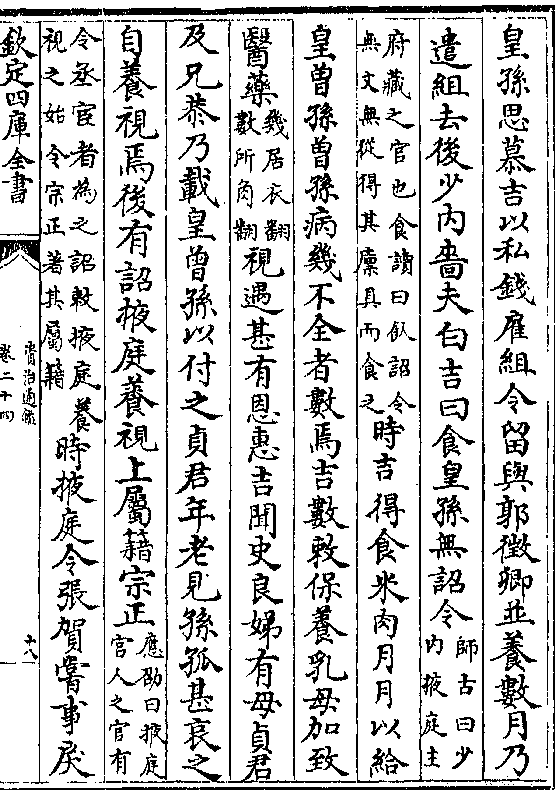 皇孫思慕吉以私錢雇組令留與郭徵卿並養數月乃
遣組去後少内嗇夫白吉曰食皇孫無詔令師古曰少内掖庭主
府藏之官也食讀曰飤詔令無文無從得其廪具而食之時吉得食米肉月月以給
皇曾孫曾孫病幾不全者數焉吉數敕保養乳母加致
醫藥幾居衣翻數所角翻視遇甚有恩惠吉聞史良娣有母貞君
及兄恭乃載皇曾孫以付之貞君年老見孫孤甚哀之
自養視焉後有詔掖庭養視上屬籍宗正應劭曰掖庭宫人之官有
令丞宦者為之詔敕掖庭養視之始令宗正著其屬籍時掖庭令張賀嘗事戾
欽定四庫全書
資治通鑑
卷二十四
十八